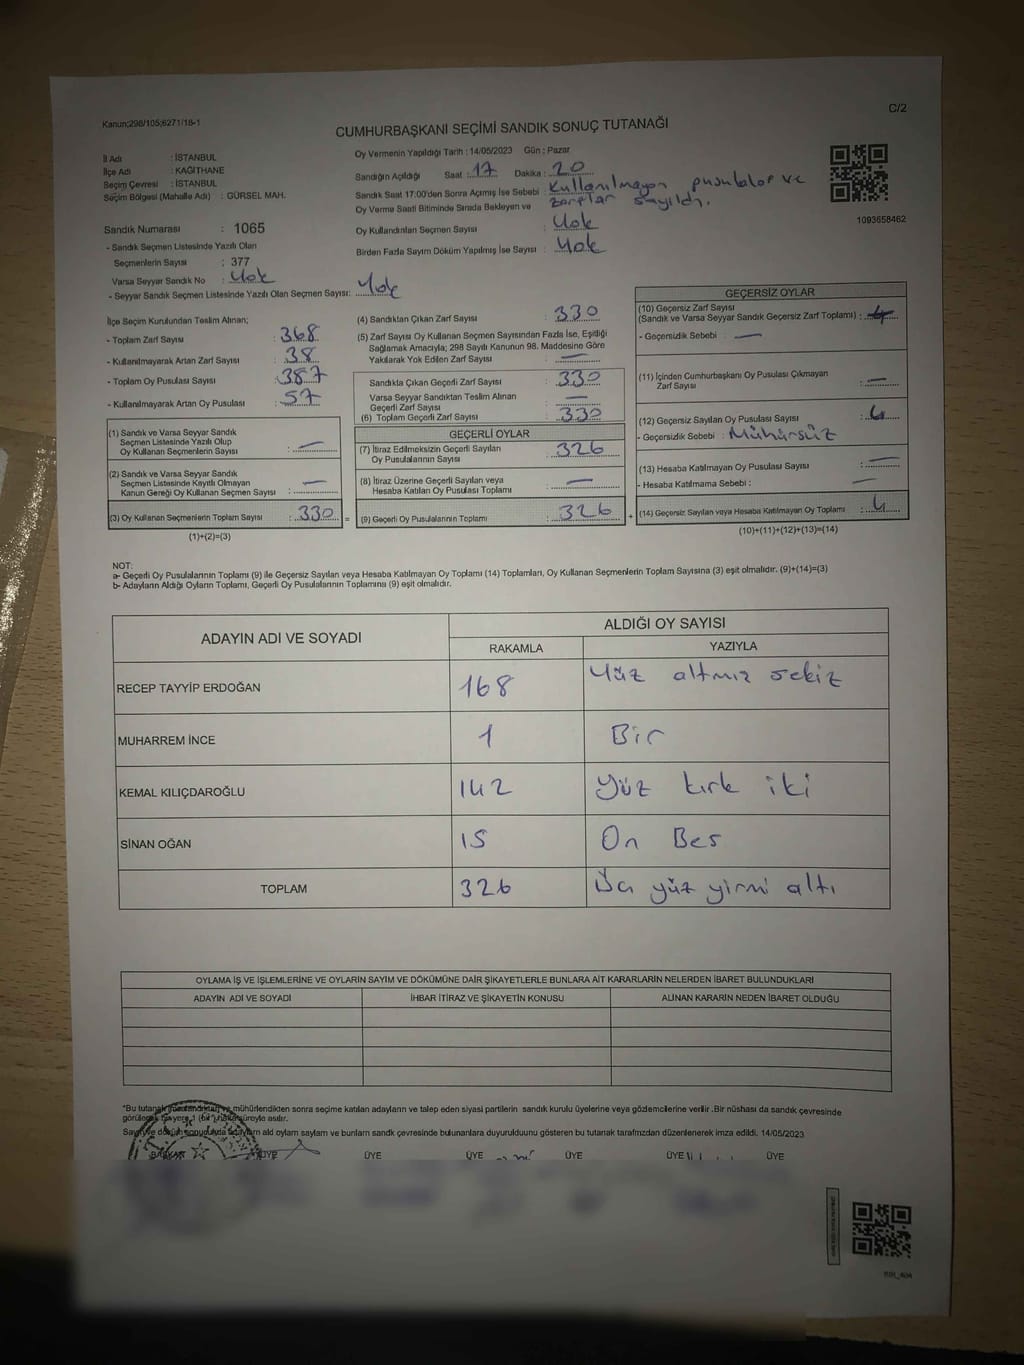 C/2
Kanun;298/105;6271/18-1
CUMHURBAŞKANI SEÇİMİ SANDIK SONUÇ TUTANAĞI
İl Adı : İSTANBUL
İlçe Adı : KAĞITHANE
Seçim Çevresi : İSTANBUL
Seçim Bölgesi (Mahalle Adı) : GÜRSEL MAH.
Oy Vermenin Yapıldığı Tarih : 14/05/2023 Gün : Pazar
Sandığın Açıldığı Saat : 17 Dakika : 20
Sandık Saat 17:00'den Sonra Açımış İse Sebebi : Kullanılmayan pusulalar ve
zarflar sayıldı.
Oy Verme Saati Bitiminde Sırada Bekleyen ve
Oy Kullandırılan Seçmen Sayısı : Yok
Birden Fazla Sayım Döküm Yapılmış İse Sayısı : Yok
1093658462
Sandık Numarası : 1065
- Sandık Seçmen Listesinde Yazılı Olan
Seçmenlerin Sayısı : 377
Varsa Seyyar Sandık No : Yok
- Seyyar Sandık Seçmen Listesinde Yazılı Olan Seçmen Sayısı: Yok
İlçe Seçim Kurulundan Teslim Alınan;
- Toplam Zarf Sayısı : 368
- Kullanılmayarak Artan Zarf Sayısı : 38
- Toplam Oy Pusulası Sayısı : 387
- Kullanılmayarak Artan Oy Pusulası : 57
(1) Sandık ve Varsa Seyyar Sandık
Seçmen Listesinde Yazılı Olup
Oy Kullanan Seçmenlerin Sayısı : —
(2) Sandık ve Varsa Seyyar Sandık
Seçmen Listesinde Kayıtlı Olmayan
Kanun Gereği Oy Kullanan Seçmen Sayısı : —
(3) Oy Kullanan Seçmenlerin Toplam Sayısı : 330 =
(1)+(2)=(3)
(4) Sandıktan Çıkan Zarf Sayısı : 330
(5) Zarf Sayısı Oy Kullanan Seçmen Sayısından Fazla İse, Eşitliği
Sağlamak Amacıyla; 298 Sayılı Kanunun 98. Maddesine Göre
Yakılarak Yok Edilen Zarf Sayısı : —
Sandıkta Çıkan Geçerli Zarf Sayısı : 330
Varsa Seyyar Sandıktan Teslim Alınan
Geçerli Zarf Sayısı : —
(6) Toplam Geçerli Zarf Sayısı : 330
GEÇERLİ OYLAR
(7) İtiraz Edilmeksizin Geçerli Sayılan
Oy Pusulalarının Sayısı : 326
(8) İtiraz Üzerine Geçerli Sayılan veya
Hesaba Katılan Oy Pusulası Toplamı : —
(9) Geçerli Oy Pusulalarının Toplamı : 326 +
GEÇERSİZ OYLAR
(10) Geçersiz Zarf Sayısı
(Sandık ve Varsa Seyyar Sandık Geçersiz Zarf Toplamı) :
- Geçersizlik Sebebi : —
(11) İçinden Cumhurbaşkanı Oy Pusulası Çıkmayan
Zarf Sayısı : —
(12) Geçersiz Sayılan Oy Pusulası Sayısı : 4
- Geçersizlik Sebebi : Mühürsüz
(13) Hesaba Katılmayan Oy Pusulası Sayısı : —
- Hesaba Katılmama Sebebi : —
(14) Geçersiz Sayılan veya Hesaba Katılmayan Oy Toplamı : 4
(10)+(11)+(12)+(13)=(14)
NOT:
a- Geçerli Oy Pusulalarının Toplamı (9) ile Geçersiz Sayılan veya Hesaba Katılmayan Oy Toplamı (14) Toplamları, Oy Kullanan Seçmenlerin Toplam Sayısına (3) eşit olmalıdır. (9)+(14)=(3)
b- Adayların Aldığı Oyların Toplamı, Geçerli Oy Pusulalarının Toplamına (9) eşit olmalıdır.
ADAYIN ADI VE SOYADI
ALDIĞI OY SAYISI
RAKAMLA YAZIYLA
RECEP TAYYİP ERDOĞAN 168 Yüz altmış sekiz
MUHARREM İNCE 1 Bir
KEMAL KILIÇDAROĞLU 142 Yüz kırk iki
SİNAN OĞAN 15 On Bes
TOPLAM 326 Üç yüz yirmi altı
OYLAMA İŞ VE İŞLEMLERİNE VE OYLARIN SAYIM VE DÖKÜMÜNE DAİR ŞİKAYETLERLE BUNLARA AİT KARARLARIN NELERDEN İBARET BULUNDUKLARI
ADAYIN ADI VE SOYADI İHBAR İTİRAZ VE ŞİKAYETİN KONUSU ALINAN KARARIN NEDEN İBARET OLDUĞU
"Bu tutanak mühürlendikten sonra seçime katılan adayların ve talep eden siyasi partilerin sandık kurulu üyelerine veya gözlemcilerine verilir .Bir nüshası da sandık çevresinde
görülecek bir yere 1 (bir) hafta süreyle asılır.
aldı oylam saylam ve bunlam sandk çevresinde bulunanlara duyurulduunu gösteren bu tutanak tarafmzdan düzenlenerek imza edildi. 14/05/2023
BAŞKAN ÜYE ÜYE ÜYE ÜYE ÜYE ÜYE